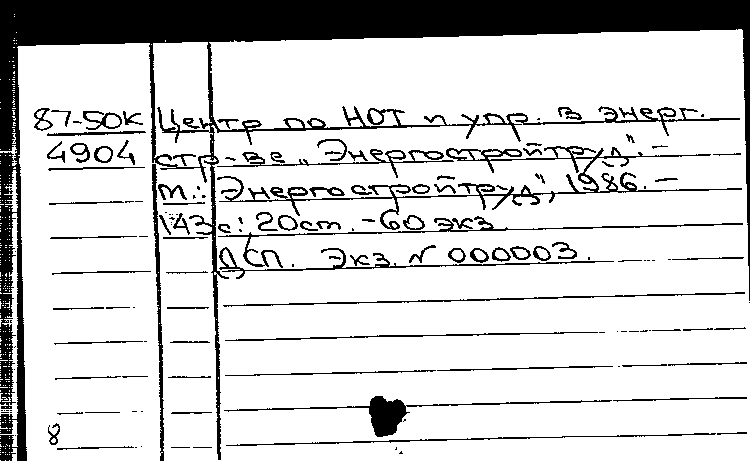 87-50К Центр по НОТ и упр. в энерг.
4904 стр-ве „Энергостройтруд". -
М.: „Энергостройтруд", 1986. -
143 с.; 20 см. - 60 экз
ДСП. Экз. N 000003.
8